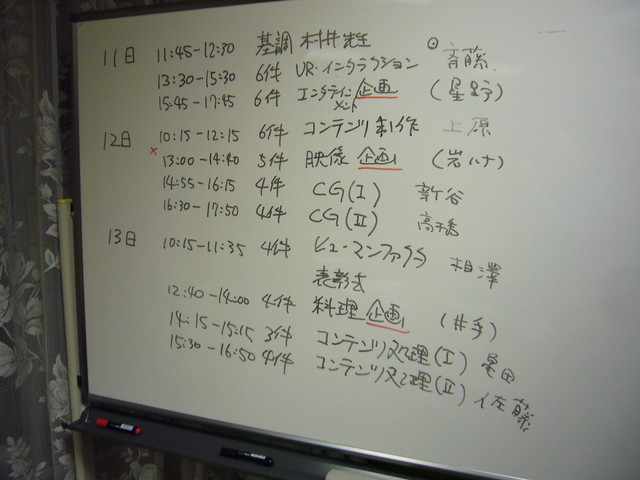 11日 11:45-12:30 基調 村井先生 ⊙ 斉藤
13:30-15:30 6件 VR・インタラクション
15:45-17:45 6件 エンタテインメント 企画 (星野)
12日 10:15-12:15 6件 コンテンツ制作 上原
× 13:00-14:40 5件 映像 企画 (岩ハナ)
14:55-16:15 4件 CG(I) 新谷
16:30-17:50 4件 CG(II) 高橋
13日 10:15-11:35 4件 ヒューマンファクタ 相澤
表彰式
12:40-14:00 4件 料理 企画 (井手)
14:15-15:15 3件 コンテンツ処理(I)
15:30-16:50 4件 コンテンツ処理(II) 佐藤